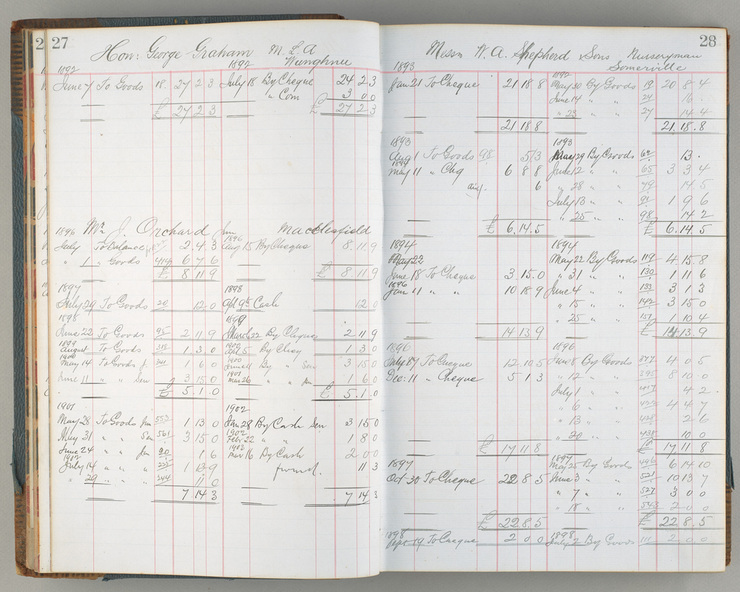 27
Hon: George Graham M.L.A
1892 1892 Wunghnu
June 7 To Goods 18 27 2 3 July 18 By Cheque 24 2 3
" Com 3 0 0
£ 27 2 3 £ 27 2 3
1896 Mr J. Orchard Jun Macclesfield
1896
July To Balance 2 4 3 Aug 15 By Cheque 8 11 9
" 1 " Goods 6 7 6
£ 8 11 9 £ 8 11 9
1897 1898
July 29 To Goods 20 12 0 Cash 12 0
1898 1899
June 22 To Goods 95 2 11 9 March 22 By Cheque 2 11 9
1899
August To Goods 1 3 0 By Cheq 1 3 0
May 14 To Goods 3 15 0 By " Sen 3 15 0
June 11 " " Sen 3 15 0 Mar 16 " " 1 6 0
£ 5 1 0 £ 5 1 0
1901 1902
May 28 To Goods Jun 552 1 13 0 Jan 28 By Cash Sen 3 15 0
1902
May 31 " " Sen 561 3 15 0 Feb 22 " " 1 8 0
June 24 " " Jun 20 1 6 Mar 16 By Cash 2 0 0
July 14 " " forward. 11 3
29 " "
7 14 3 7 14 3
28
Messrs W. A. Shepherd & Sons Nurseryman
Somerville
1893 1892
Jan 21 To Cheque 21 18 8 May 30 By Goods 19 20 8 4
June 14 " " 24 16
" 23 " " 27 14 4
21 18 8 21 18 8
1893 1893
Aug 1 To Goods 98 5/3 May 29 By Goods 62 13
1894
May 11 " Chq 6 8 8 June 12 " " 65 3 3 4
6 " 28 " " 79 14 5
July 13 " " 91 1 9 6
" 25 " " 98 14 2
£ 6 14 5 £ 6 14 5
1894 1894
May 22 May 22 By Goods 119 4 15 8
June 18 To Cheque 3 15 0 " 31 " " 130 1 11 6
1896
Jan 11 " " 10 18 9 June 4 " " 133 3 1 3
" 15 " " 142 3 15 0
" 25 " " 151 1 10 4
14 13 9 £ 14 13 9
1896 1896
July 87 To Cheque 12 10 5 June 8 By Goods 4 0 5
Dec 11 " Cheque 5 1 3 " 12 " " 8 10 0
July 1 " " 4 2
" 6 " " 4 4 7
" 13 " " 2 6
" 20 " " 10 0
£ 17 11 8 £ 17 11 8
1897 1897
Oct 30 To Cheque 22 8 5 May 25 By Goods 496 6 14 10
June 3 " " 521 10 13 7
" 7 " " 527 3 0 0
" 18 " " 543 2 0 0
£ 22 8 5 £ 22 8 5
1898 1898
Sept 19 To Cheque 2 0 0 July 2 By Goods 2 0 0